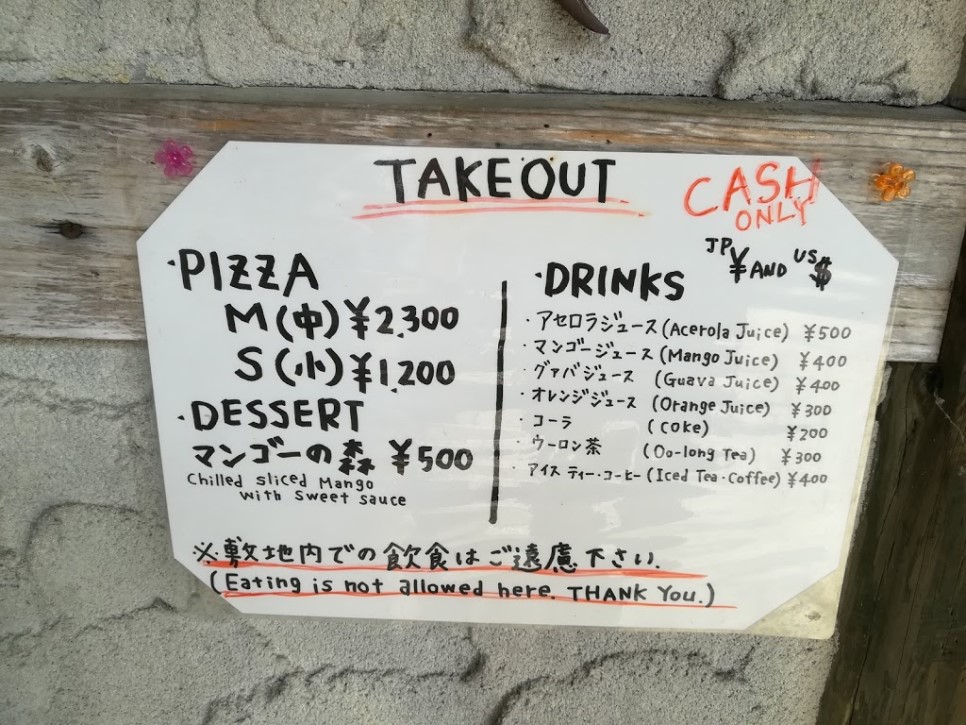 TAKEOUT
CASH
ONLY
JP¥ AND US$
・PIZZA
M(中)¥2,300
S(小)¥1,200
・DESSERT
マンゴーの森 ¥500
Chilled sliced Mango
with Sweet sauce
・DRINKS
・アセロラジュース(Acerola Juice) ¥500
・マンゴージュース(Mango Juice) ¥400
・グァバジュース (Guava Juice) ¥400
・オレンジジュース (Orange Juice) ¥300
・コーラ (coke) ¥200
・ウーロン茶 (Oo-long Tea) ¥300
・アイス ティー・コーヒー(Iced Tea・Coffee) ¥400
※敷地内での飲食はご遠慮下さい.
(Eating is not allowed here. THANK You.)